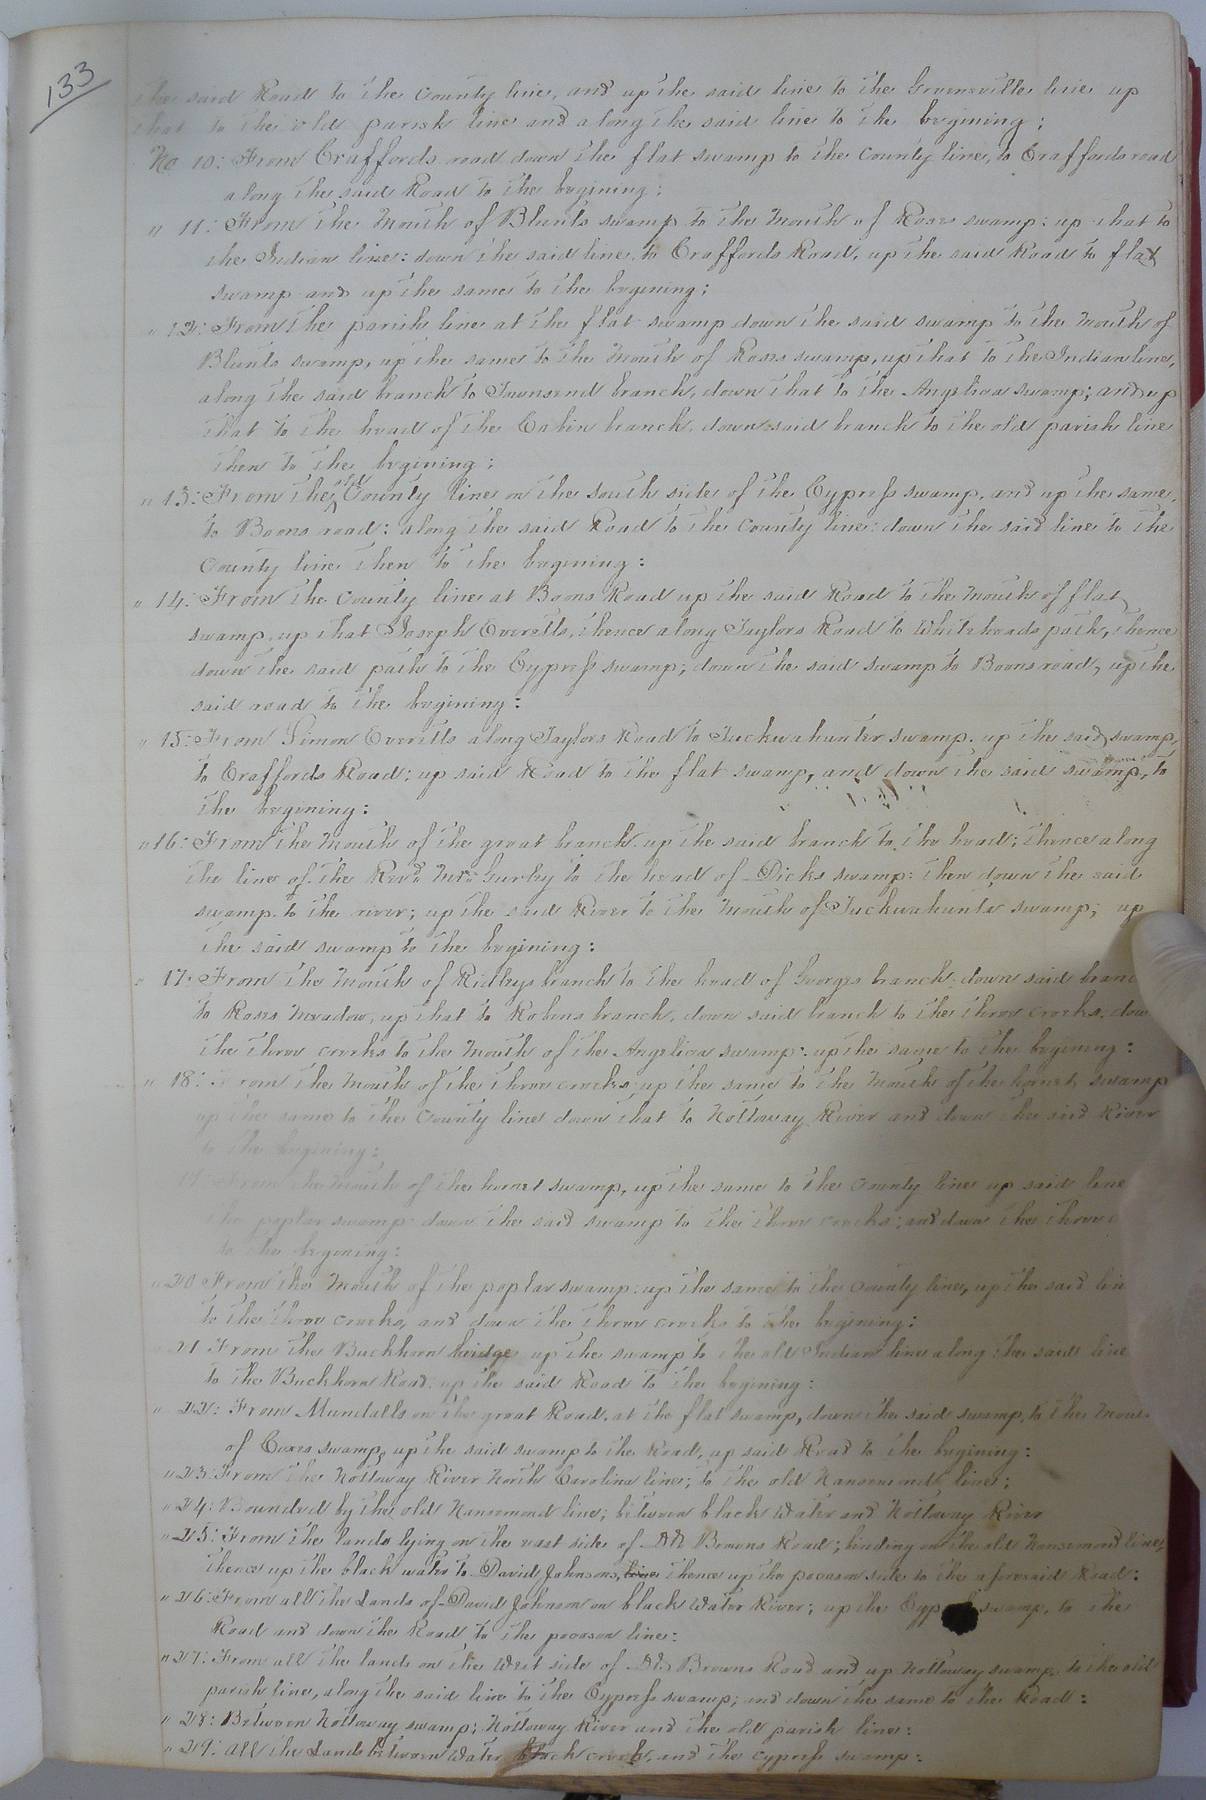 133
the said Road to the County line, and up the said line to the Greensville line up
that to the old parish line and along the said line to the begining;
No 10: From Craffords road down the flat swamp to the County line, to Craffords road
along the said Road to the begining;
" 11: From the Mouth of Blunts swamp to the Mouth of Roses swamp: up that to
the Indian line: down the said line to Craffords Road, up the said Road to flat
swamp and up the same to the begining;
" 12: From the parish line at the flat swamp down the said swamp to the Mouth of
Blunts swamp, up the same to the Mouth of Roses swamp, up that to the Indian line,
along the said branch to Townsend branch, down that to the Angelica swamp; and up
that to the head of the Cabin branch, down said branch to the old parish line
then to the begining;
" 13: From the old County line on the south side of the Cypress swamp, and up the same,
to Boons road: along the said Road to the County line: down the said line to the
County line then to the begining:
" 14: From the County line at Boons Road up the said Road to the Mouth of flat
swamp, up that Joseph Everetts, thence along Taylors Road to Whiteheads path, thence
down the said path to the Cypress swamp; down the said swamp to Boons road, up the
said road to the begining:
" 15: From Simon Everetts along Taylors Road to Tuckwahunter swamp. up the said swamp,
to Craffords Road; up said Road to the flat swamp, and down the said swamp, to
the begining:
" 16: From the Mouth of the great branch up the said branch to the head; thence along
the line of the Revd. Mr. Gurley to the head of Dicks swamp: then down the said
swamp to the river; up the said River to the Mouth of Tuckwahunta swamp; up
the said swamp to the begining:
" 17: From the Mouth of Ridleys branch to the head of Georges branch, down said branc
to Roses Meadow, up that to Robins branch, down said branch to the three creeks, dow
the three creeks to the Mouth of the Angelica swamp: up the same to the begining:
" 18: From the Mouth of the three creeks up the same to the Mouth of the hornet swamp
up the same to the County line down that to Nottoway River and down the said River
to the begining:
19: From the Mouth of the hornet swamp, up the same to the County line up said line
the poplar swamp down the said swamp to the three creeks; and down the three c
to the begining:
" 20 From the Mouth of the poplar swamp: up the same to the County line, up the said lin
to the three creeks, and down the three creeks to the begining:
21 From the Buckhorn bridge up the swamp to the old Indian line along the said line
to the Buckhorn Road: up the said Road to the begining:
" 22: From Mundalls on the great Road, at the flat swamp, down the said swamp, to the Mou
of Coxes swamp, up the said swamp to the Road, up said Road to the begining:
" 23: From the Nottoway River North Carolina line; to the old Nansemond line;
" 24: Bounded by the old Nansemond line; between black Water and Nottoway River
" 25: From the lands lying on the east side of Dd. Browns Road; binding on the old Nansemond line,
thence up the black water to David Johnsons, line thence up the pocoson side to the aforesaid Road:
" 26: From all the Lands of David Johnson on black Water River; up the Cypress swamp, to the
Road and down the Road to the pocoson line:
" 27: From all the lands on the West side of Dd. Browns Road and up Nottoway swamp to the old
parish line, along the said line to the Cypress swamp; and down the same to the Road:
" 28: Between Nottoway swamp; Nottoway River and the old parish line:
" 29: All the Lands between Water creek, and the cypress swamp: